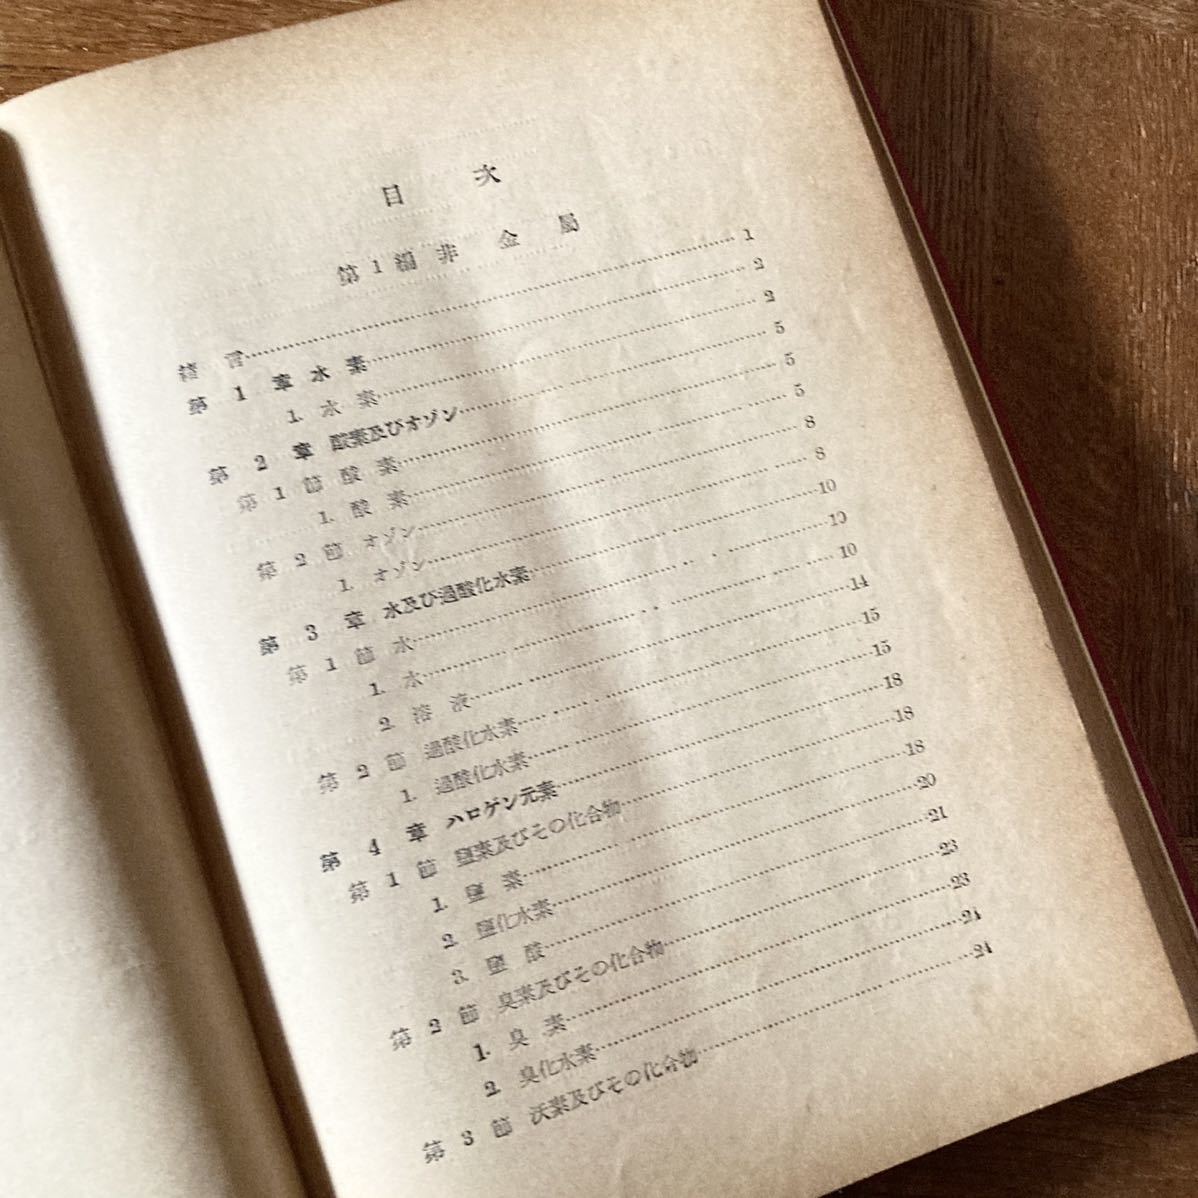 目 次
第1編 非金属
緒言 1
第1章 水素 2
1. 水素 2
第2章 酸素及びオゾン 5
第1節 酸素 5
1. 酸素 5
第2節 オゾン 8
1. オゾン 8
第3章 水及び過酸化水素 10
第1節 水 10
1. 水 10
2. 溶液 14
第2節 過酸化水素 15
1. 過酸化水素 15
第4章 ハロゲン元素 18
第1節 鹽素及びその化合物 18
1. 鹽素 18
2. 鹽化水素 20
3. 鹽酸 21
第2節 臭素及びその化合物 23
1. 臭素 23
2. 臭化水素 24
第3節 沃素及びその化合物 24